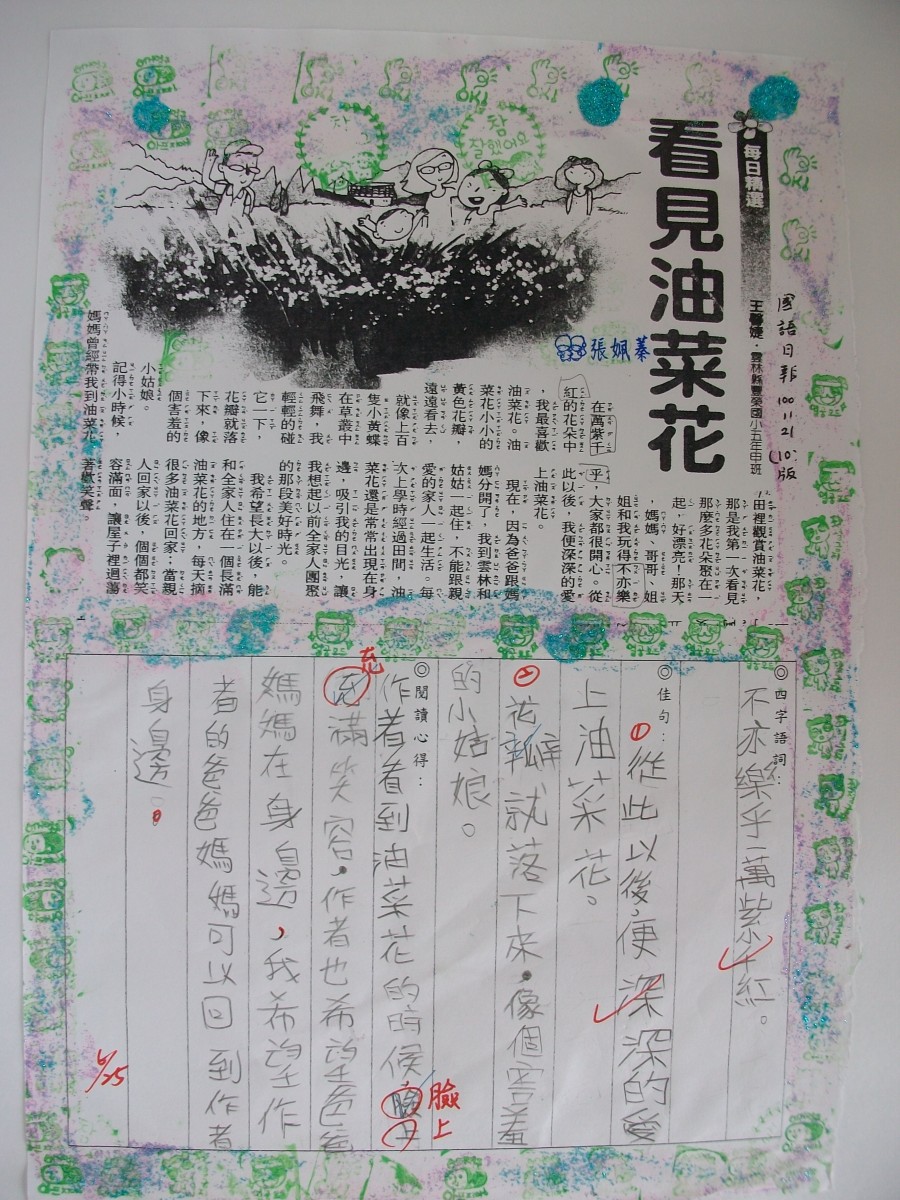 每日精選
看見油菜花
王馨婕．雲林縣豐榮國小五年甲班
國語日報 100.11.21 (10)版
張姵蓁
在萬紫千
紅的花朵中
，我最喜歡
油菜花。油
菜花小小的
黃色花瓣，
遠遠看去，
就像上百
隻小黃蝶
在草叢中
飛舞，我
輕輕的碰
它一下，
花瓣就落
下來，像
個害羞的
小姑娘。
記得小時候，
媽媽曾經帶我到油菜花
田裡觀賞油菜花，
那是我第一次看見
那麼多花朵聚在一
起，好漂亮！那天
，媽媽、哥哥、姐
姐和我玩得不亦樂
乎，大家都很開心。從
此以後，我便深深的愛
上油菜花。
現在，因為爸爸跟媽
媽分開了，我到雲林和
姑姑一起住，不能跟親
愛的家人一起生活。每
次上學時經過田間，油
菜花還是常常出現在身
邊，吸引我的目光，讓
我想起以前全家人團聚
的那段美好時光。
我希望長大以後，能
和全家人住在一個長滿
油菜花的地方，每天摘
很多油菜花回家；當親
人回家以後，個個都笑
容滿面，讓屋子裡迴蕩
著歡笑聲。
◎四字語詞：
不亦樂乎、萬紫千紅。
◎佳句：
①從此以後，便深深的愛
上油菜花。
②花瓣就落下來，像個害羞
的小姑娘。
◎閱讀心得：
作者看到油菜花的時候臉上
臉上
充
充滿笑容，作者也希望爸爸
媽媽在身邊，我希望作
者的爸爸媽媽可以回到作者
身邊。
6/25
참
참
잘했어요
OK!